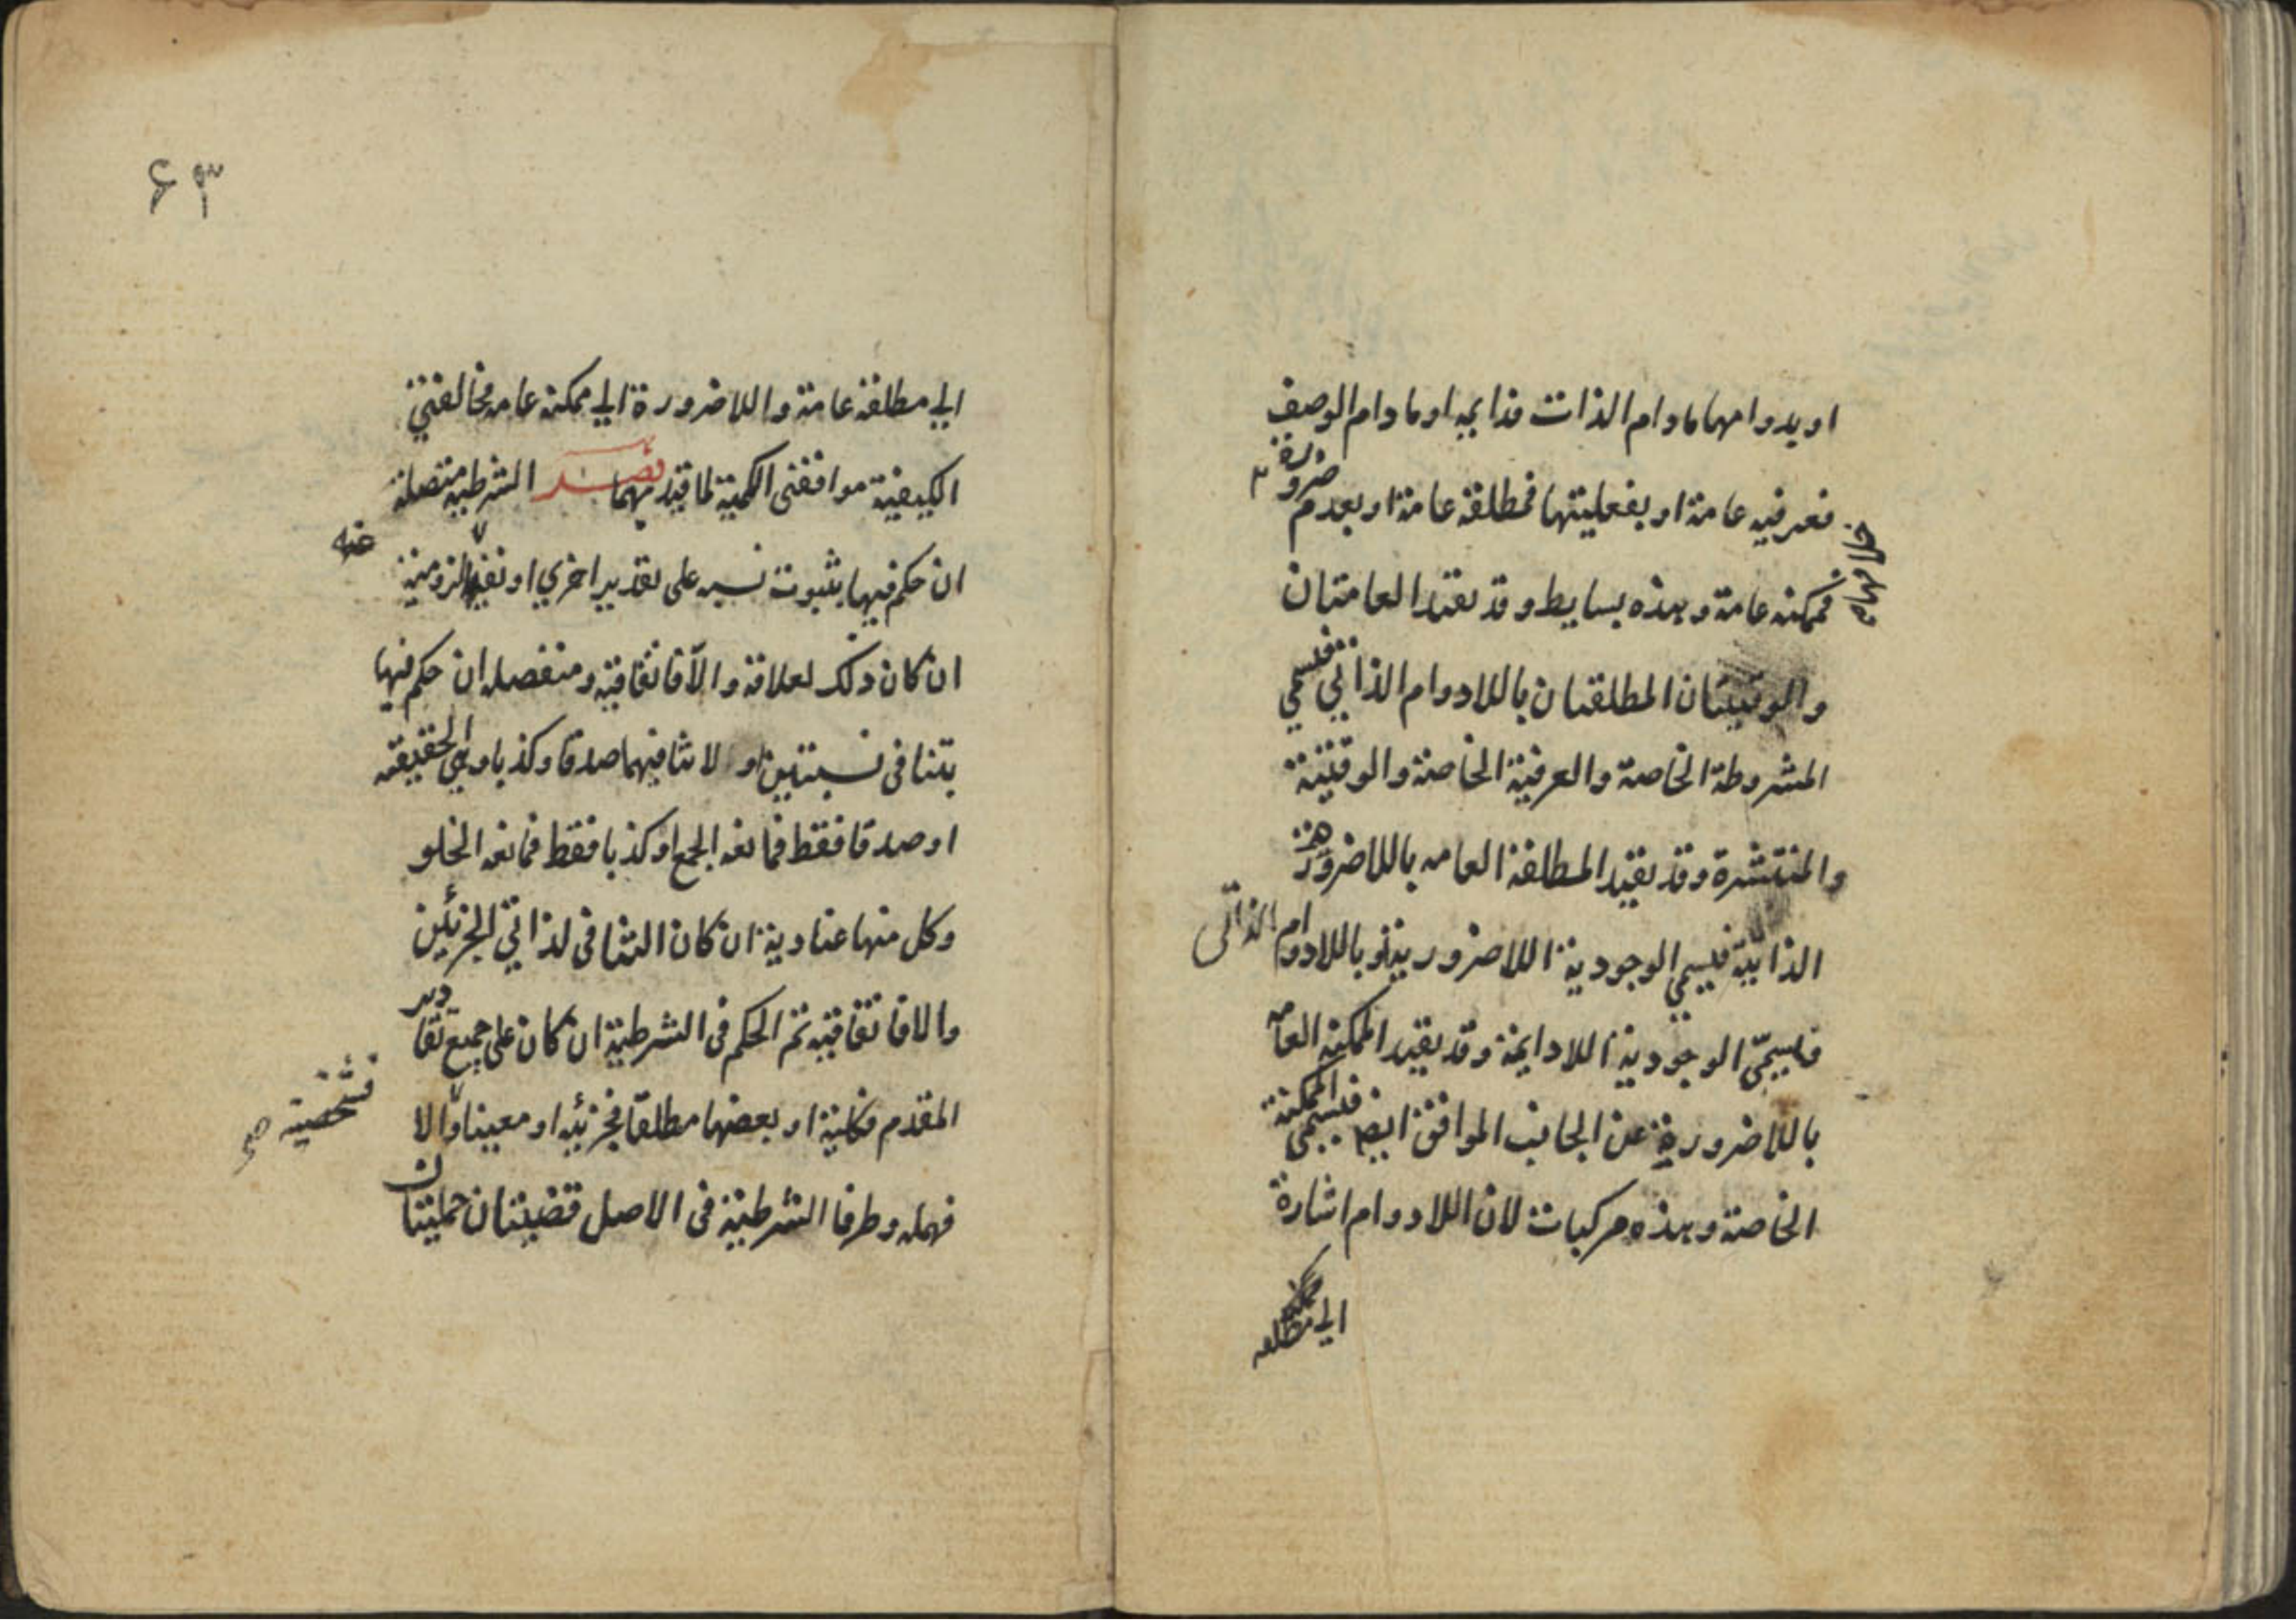 او بدوامها مادام الذات فدايمه او مادام الوصف
فعرفيه عامة او بفعليتها فمطلقة عامة او بعدم ضرورة
خلافها
فممكنه عامة وهذه بسايط وقد تقيد العامتان
والوقتيتان المطلقتان باللادوام الذاتي فتسمي
المشروطة الخاصة والعرفية الخاصة والوقتية
والمنتشرة وقد تقيد المطلقة العامه باللاضرورة
الذاتية فتسمي الوجودية اللاضرورية او باللادوام الذاتى
فتسمي الوجودية اللادايمة وقد تقيد الممكنه العامه
باللاضرورية عن الجانب الموافق ايضا فتسمي الممكنة
الخاصة وهذه مركبات لان اللادوام اشارة
الي مطلقه
۶۳
الي مطلقة عامة واللاضرورة الي ممكنه عامه مخالفتي
الكيفية موافقتى الكمية لما قيد بهما فصل الشرطية متصلة
ان حكم فيها بثبوت نسبه على تقدير اخري او نفيها لزومية
ان كان ذلك لعلاقة والا فاتفاقية ومنفصله ان حكم فيها
بتنافى نسبتين او لا تنافيهما صدقا وكذبا وهي الحقيقيه
او صدقا فقط فمانعه الجمع او كذبا فقط فمانعه الخلو
وكل منها عنادية ان كان التنافى لذاتي الجزئين
والا فاتفاقيه ثم الحكم فى الشرطية ان كان على جميع تقادير
المقدم فكلية او بعضها مطلقا فجزئيه او معينا والا
فشخصية صح
فهمله وطرفا الشرطية فى الاصل قضيتان حمليتان